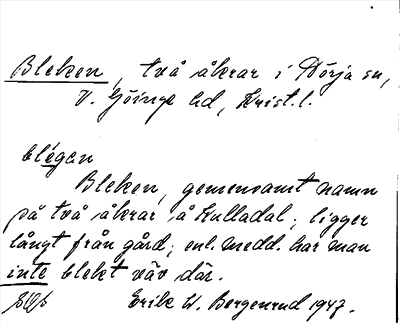 Bleken, två åkrar i Nörja sn,
V. Göinge hd, Krist. l.
blégan
Bleken, gemensamt namn
på två åkrar å Kulladal; ligger
långt från gård; enl. medd. har man
inte blekt väv där.
Erik W. Bergenrud 1947.